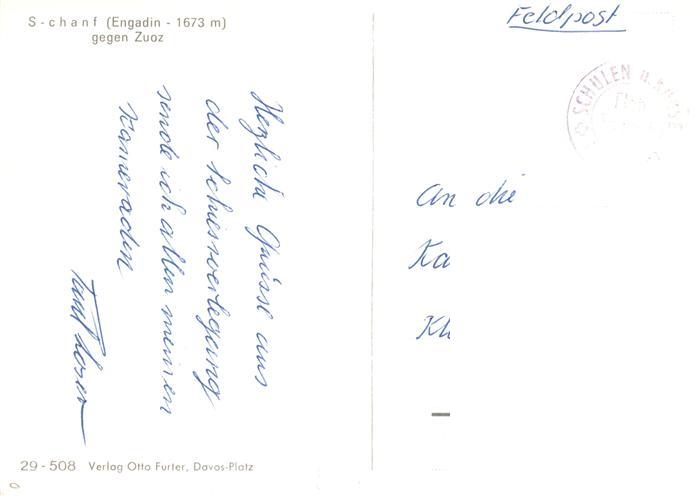 S-chanf (Engadin - 1673 m)
gegen Zuoz
Herzliche Grüsse aus
der Schiessverlegung
sende ich allen meinen
Kameraden
Feldpost
SCHULEN U. KURSE
An die
Ka
Kh
29-508 Verlag Otto Furter, Davos-Platz